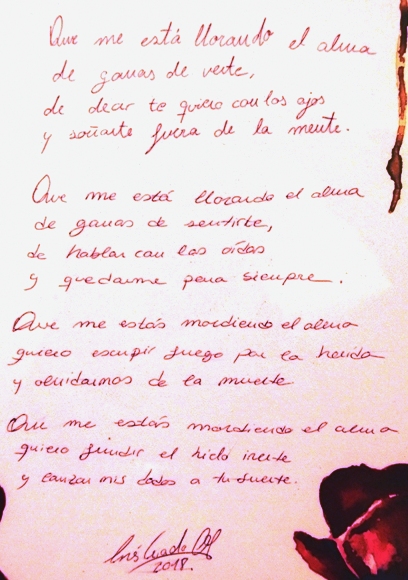 Que me está llorando el alma
de ganas de verte,
de decir te quiero con los ojos
y soñarte fuera de la mente.
Que me está llorando el alma
de ganas de sentirte,
de hablar con los oídos
y quedarme para siempre.
Que me estás mordiendo el alma
quiero escupir fuego por la herida
y olvidarnos de la muerte.
Que me estás mordiendo el alma
quiero fundir el hielo inerte
y lanzar mis dados a tu suerte.
Inés
2018.